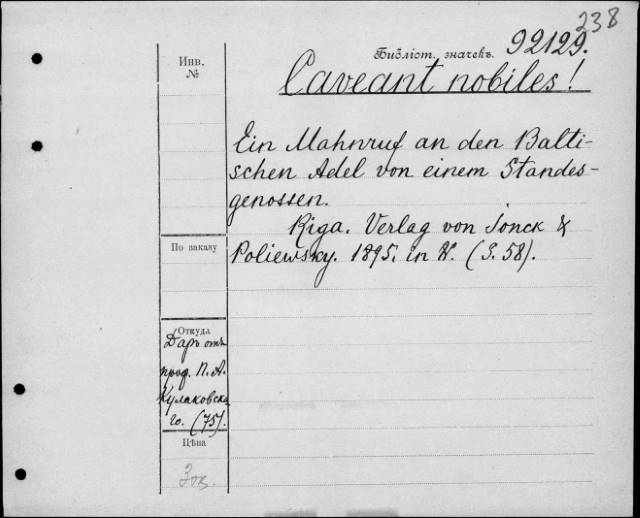 238
Инв.
№
Библіот. значекъ. 92129.
Caveant nobiles!
Ein Mahnruf an den Balti-
schen Adel von einem Standes-
genossen.
Riga. Verlag von Jonck &
Poliewsky. 1895. in 8. (S. 58).
По заказу
Откуда
Даръ отъ
проф. П. А.
Кулаковска
го. (75).
Цѣна